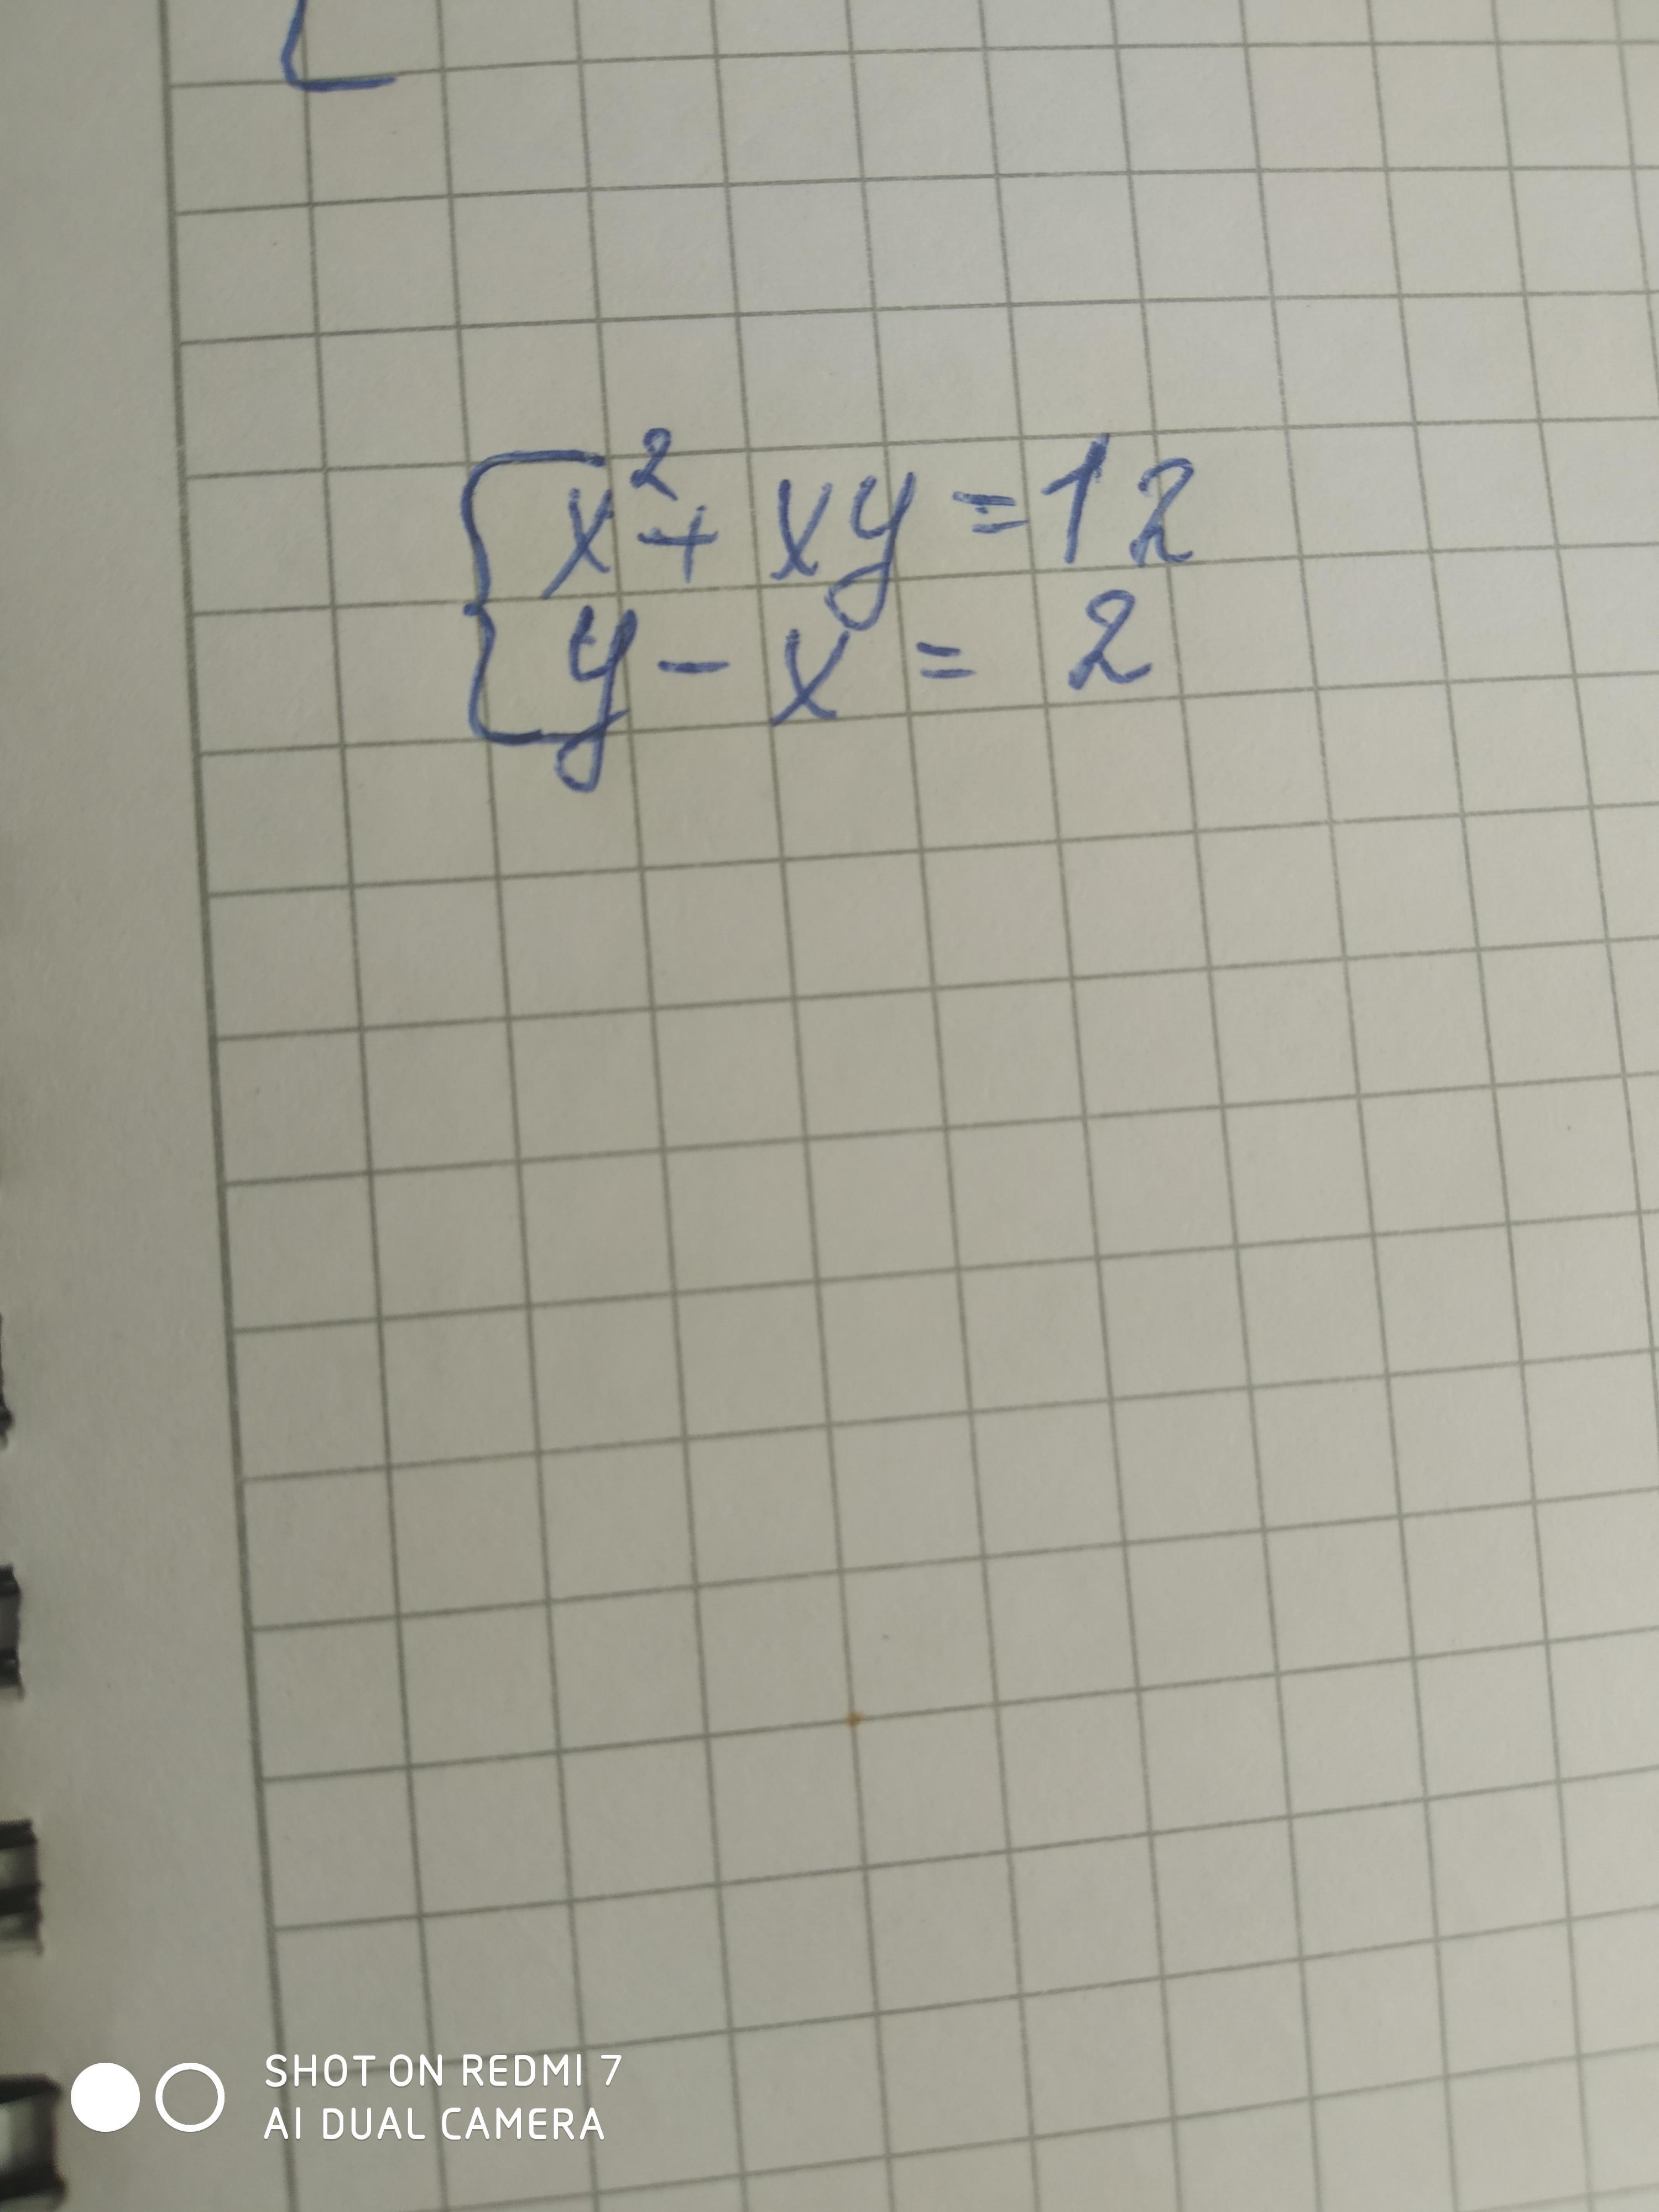 x² + xy = 12
y - x = 2
SHOT ON REDMI 7
AI DUAL CAMERA